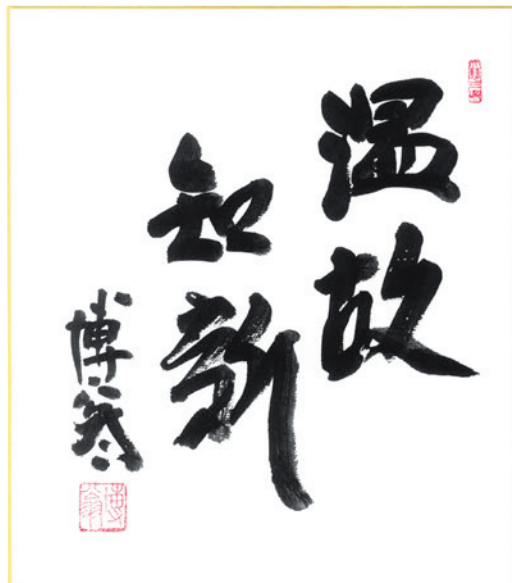 温故
知新
博翁